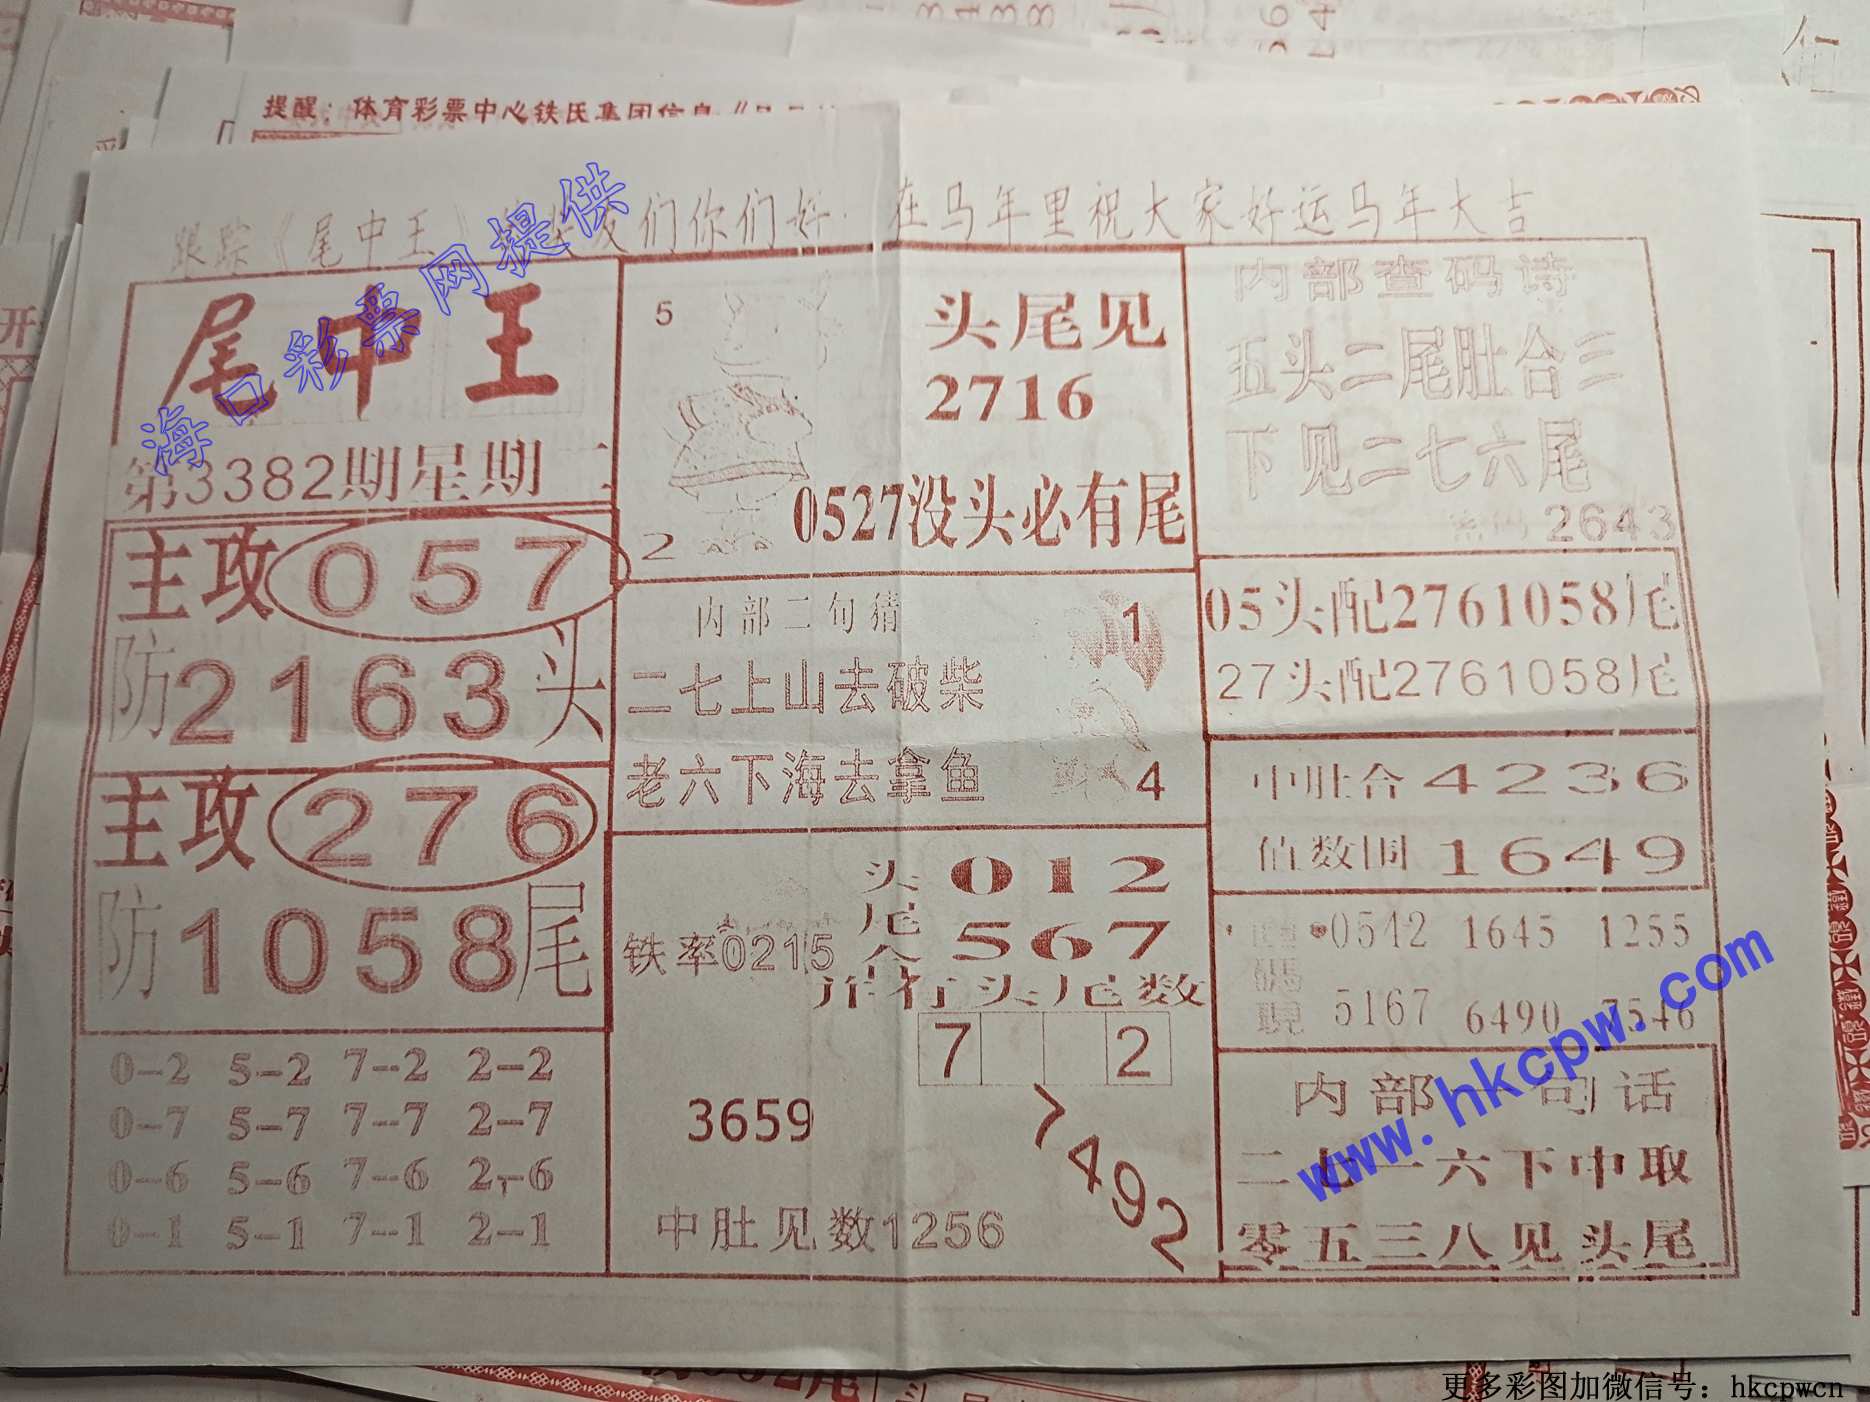 提醒：体育彩票中心铁氏集团信息《
跟踪《尾中王》
友们你们好．在马年里祝大家好运马年大吉
海口彩票网提供
尾中王
第3382期星期二
主攻057
防2163头
主攻276
防1058尾
0--2 5--2 7--2 2--2
0--7 5--7 7--7 2--7
0--6 5--6 7--6 2--6
0--1 5--1 7--1 2--1
5
头尾见
2716
0527没头必有尾
2
内部二句猜
1
二七上山去破柴
老六下海去拿鱼
4
头 012
尾
合 567
铁率0215
并有头尾数
7 2
3659
7492
中肚见数1256
内部查码诗
五头二尾肚合三
下见二七六尾
2643
05头配2761058尾
27头配2761058尾
中肚合4236
值数围1649
0542 1645 1255
碼
5167 6490 7546
内部一句话
二七一六下中取
零五三八见头尾
www.hkcpw.com
更多彩图加微信号：hkcpwcn